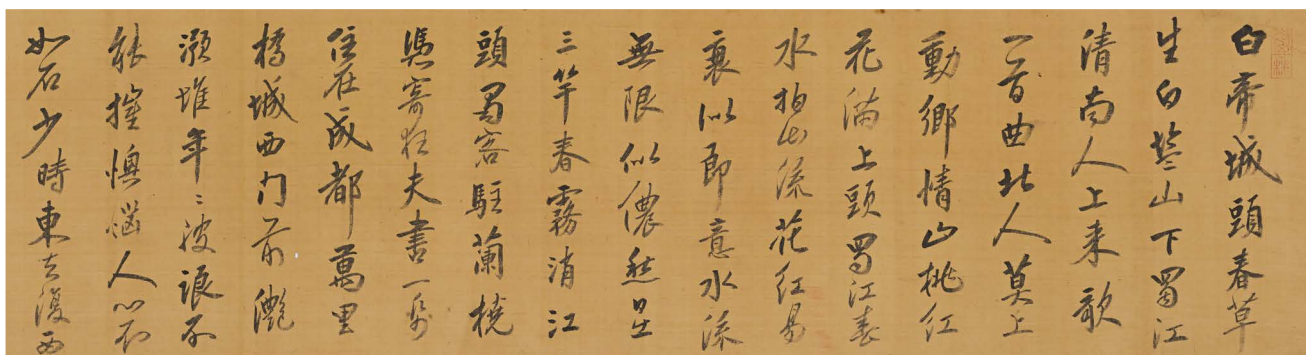 白帝城頭春草
生白鹽山下蜀江
清南人上來歌
一首曲北人莫上
動鄉情山桃紅
花滿上頭蜀江春
水拍山流花紅易
衰似郎意水流
無限似儂愁日出
三竿春霧消江
頭蜀客駐蘭橈
憑寄狂夫書一紙
住在成都萬里
橋城西門前灩
澦堆年〻波浪不
能摧懊惱人心不
如石少時東去復西